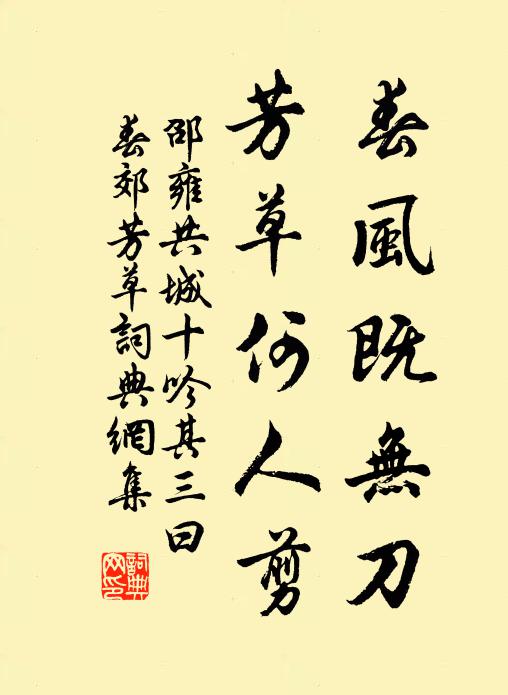 春風既無刀
芳草何人剪
邵雍共城十吟其三曰
春郊芳草詞典網集
詞典網印